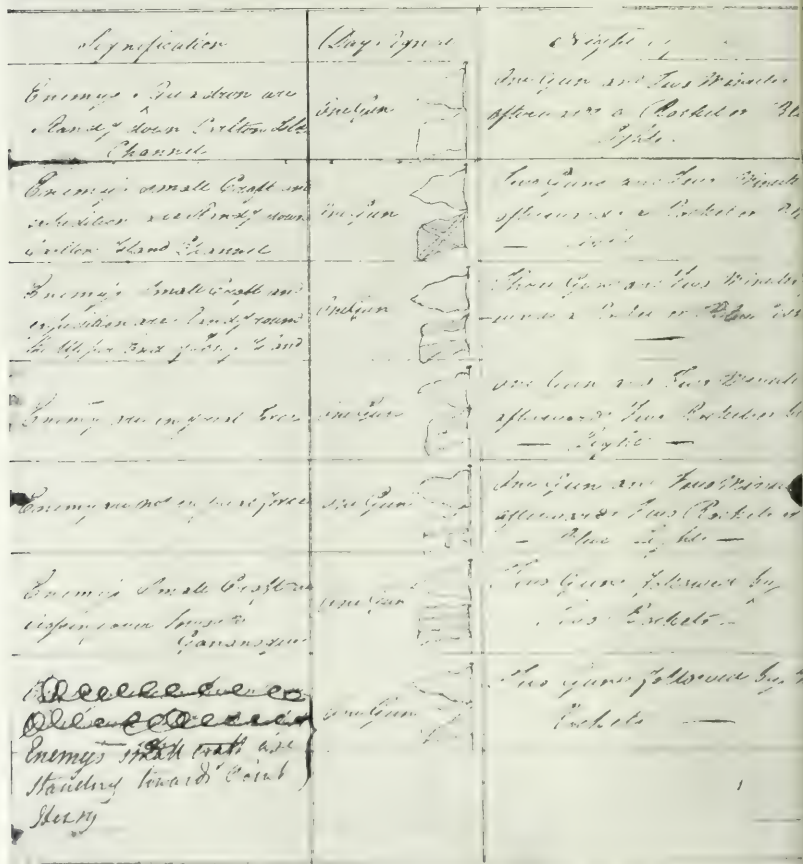 Signification
Day Signal
Night
Enemy's Squadron are
Standg down Carlton Isld
Channel
One Gun
One Gun and Two Minutes
afterwards a Rocket or Blue
Light.
Enemy's Small Craft and
down
Carlton Island Channel
One Gun
Two Guns and Two Minutes
afterwards a Rocket or
Light
Enemy's Small Craft and
are Standg round
the Upper End of Long Island
One Gun
Three Guns and Two Minutes
a Rocket or Blue
Enemy are in great Force
One Gun
One Gun and Two Minutes
afterwards Two Rockets or
Lights
Enemy are not in great force
One Gun
One Gun and Two Minutes
afterwards Two Rockets or
Blue Lights
Enemy's Small Craft are
over towards
Gananoque
One Gun
Two Guns followed by
Two Rockets
Enemy's small craft are
standing towards Point
Henry
One Gun
Two Guns followed by
Rockets